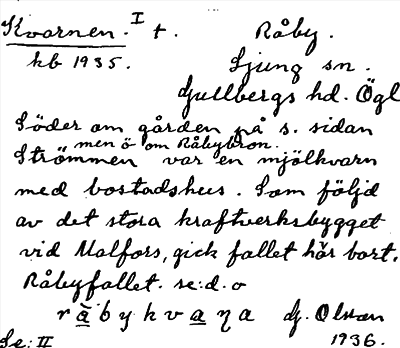 Kvarnen. I t. Råby.
kb 1935. Ljung sn.
Gullbergs hd. Ögl
Söder om gården på s. sidan
men ö om Råbybron.
Strömmen var en mjölkvarn
med bostadshus. Som följd
av det stora kraftverksbygget
vid Malfors, gick fallet här bort.
Råbyfallet. se: d. o
råbykvaṇa G. Olson
Se: II 1936.